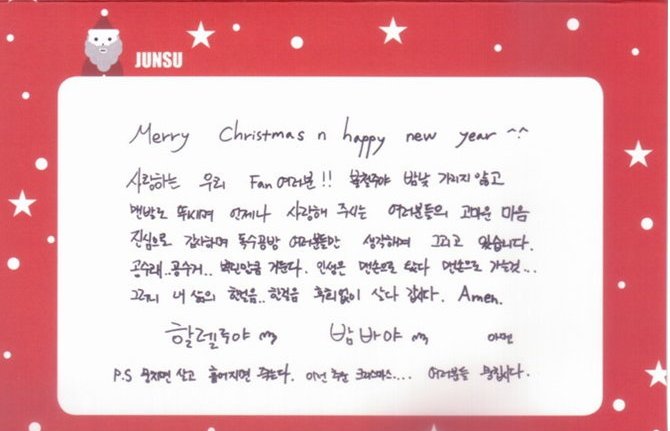 JUNSU
Merry Christmas n happy new year ^^
사랑하는 우리 Fan 여러분!! 불철주야 밤낮 가리지 않고
맨발로 뚜시며 언제나 사랑해 주시는 여러분들의 고마운 마음
진심으로 감사하며 독수공방 여러분들만 생각하며 그리고 있습니다.
공수래..공수거.. 만큼 거둔다. 인생은 맨손으로 왔다 맨손으로 가는것...
그러니 내 삶의 한걸음..한걸음 후회없이 살다 갑시다. Amen.
할렐루야 밤바야 아멘
P.S 뭉치면 살고 흩어지면 죽는다. 이번 추운 크리스마스.... 여러분들 뭉칩시다.